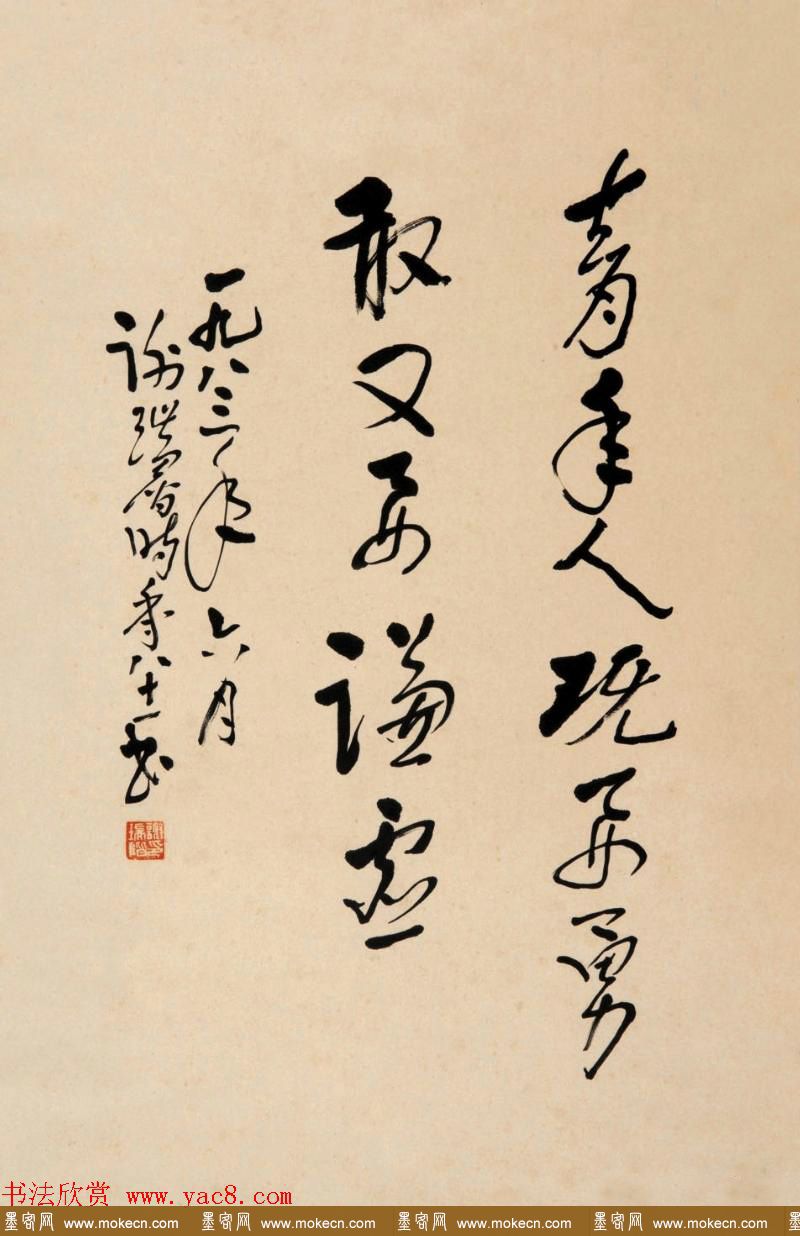 青年人既要勇
敢又要謙虚
一九八三年六月
谢瑞階時年八十一书
書法欣赏 www.yac8.com
墨客网 www.mokecn.com 墨客网 www.mokecn.com 墨客网 www.mokecn.com 墨客网 www.mokecn.com